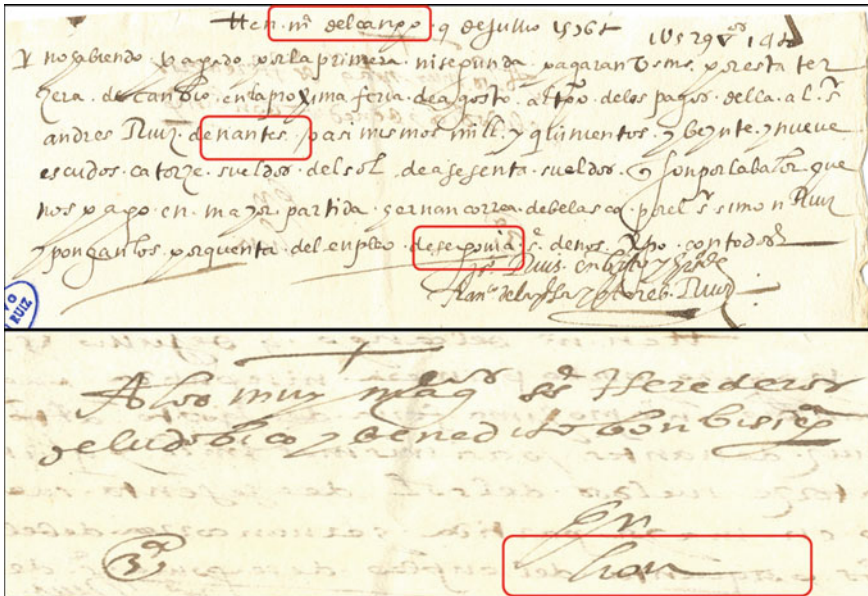 en mª del canpo 9 de Jullio 1576
y no habiendo pagado por la primera ni segunda pagaran V sms por esta ter
zera de canbio en la proxima feria de agosto al tpo de los pagos della al sr
andres Ruiz de nantes pasi mismos mill y quinientos y beynte y nueve
escudos catorze sueldos del sol de a sesenta sueldos son por la balor que
nos pago en mayor partida hernan correa de belasco por el sr simon Ruiz
y ponganlos por quenta del enpleo de segouia de nos Xpo con todos
Ruiz
Ruiz
RUIZ
A los muy mag cos ss Herederos
de ludobico y benedito bonbisi
en
lion
3ª